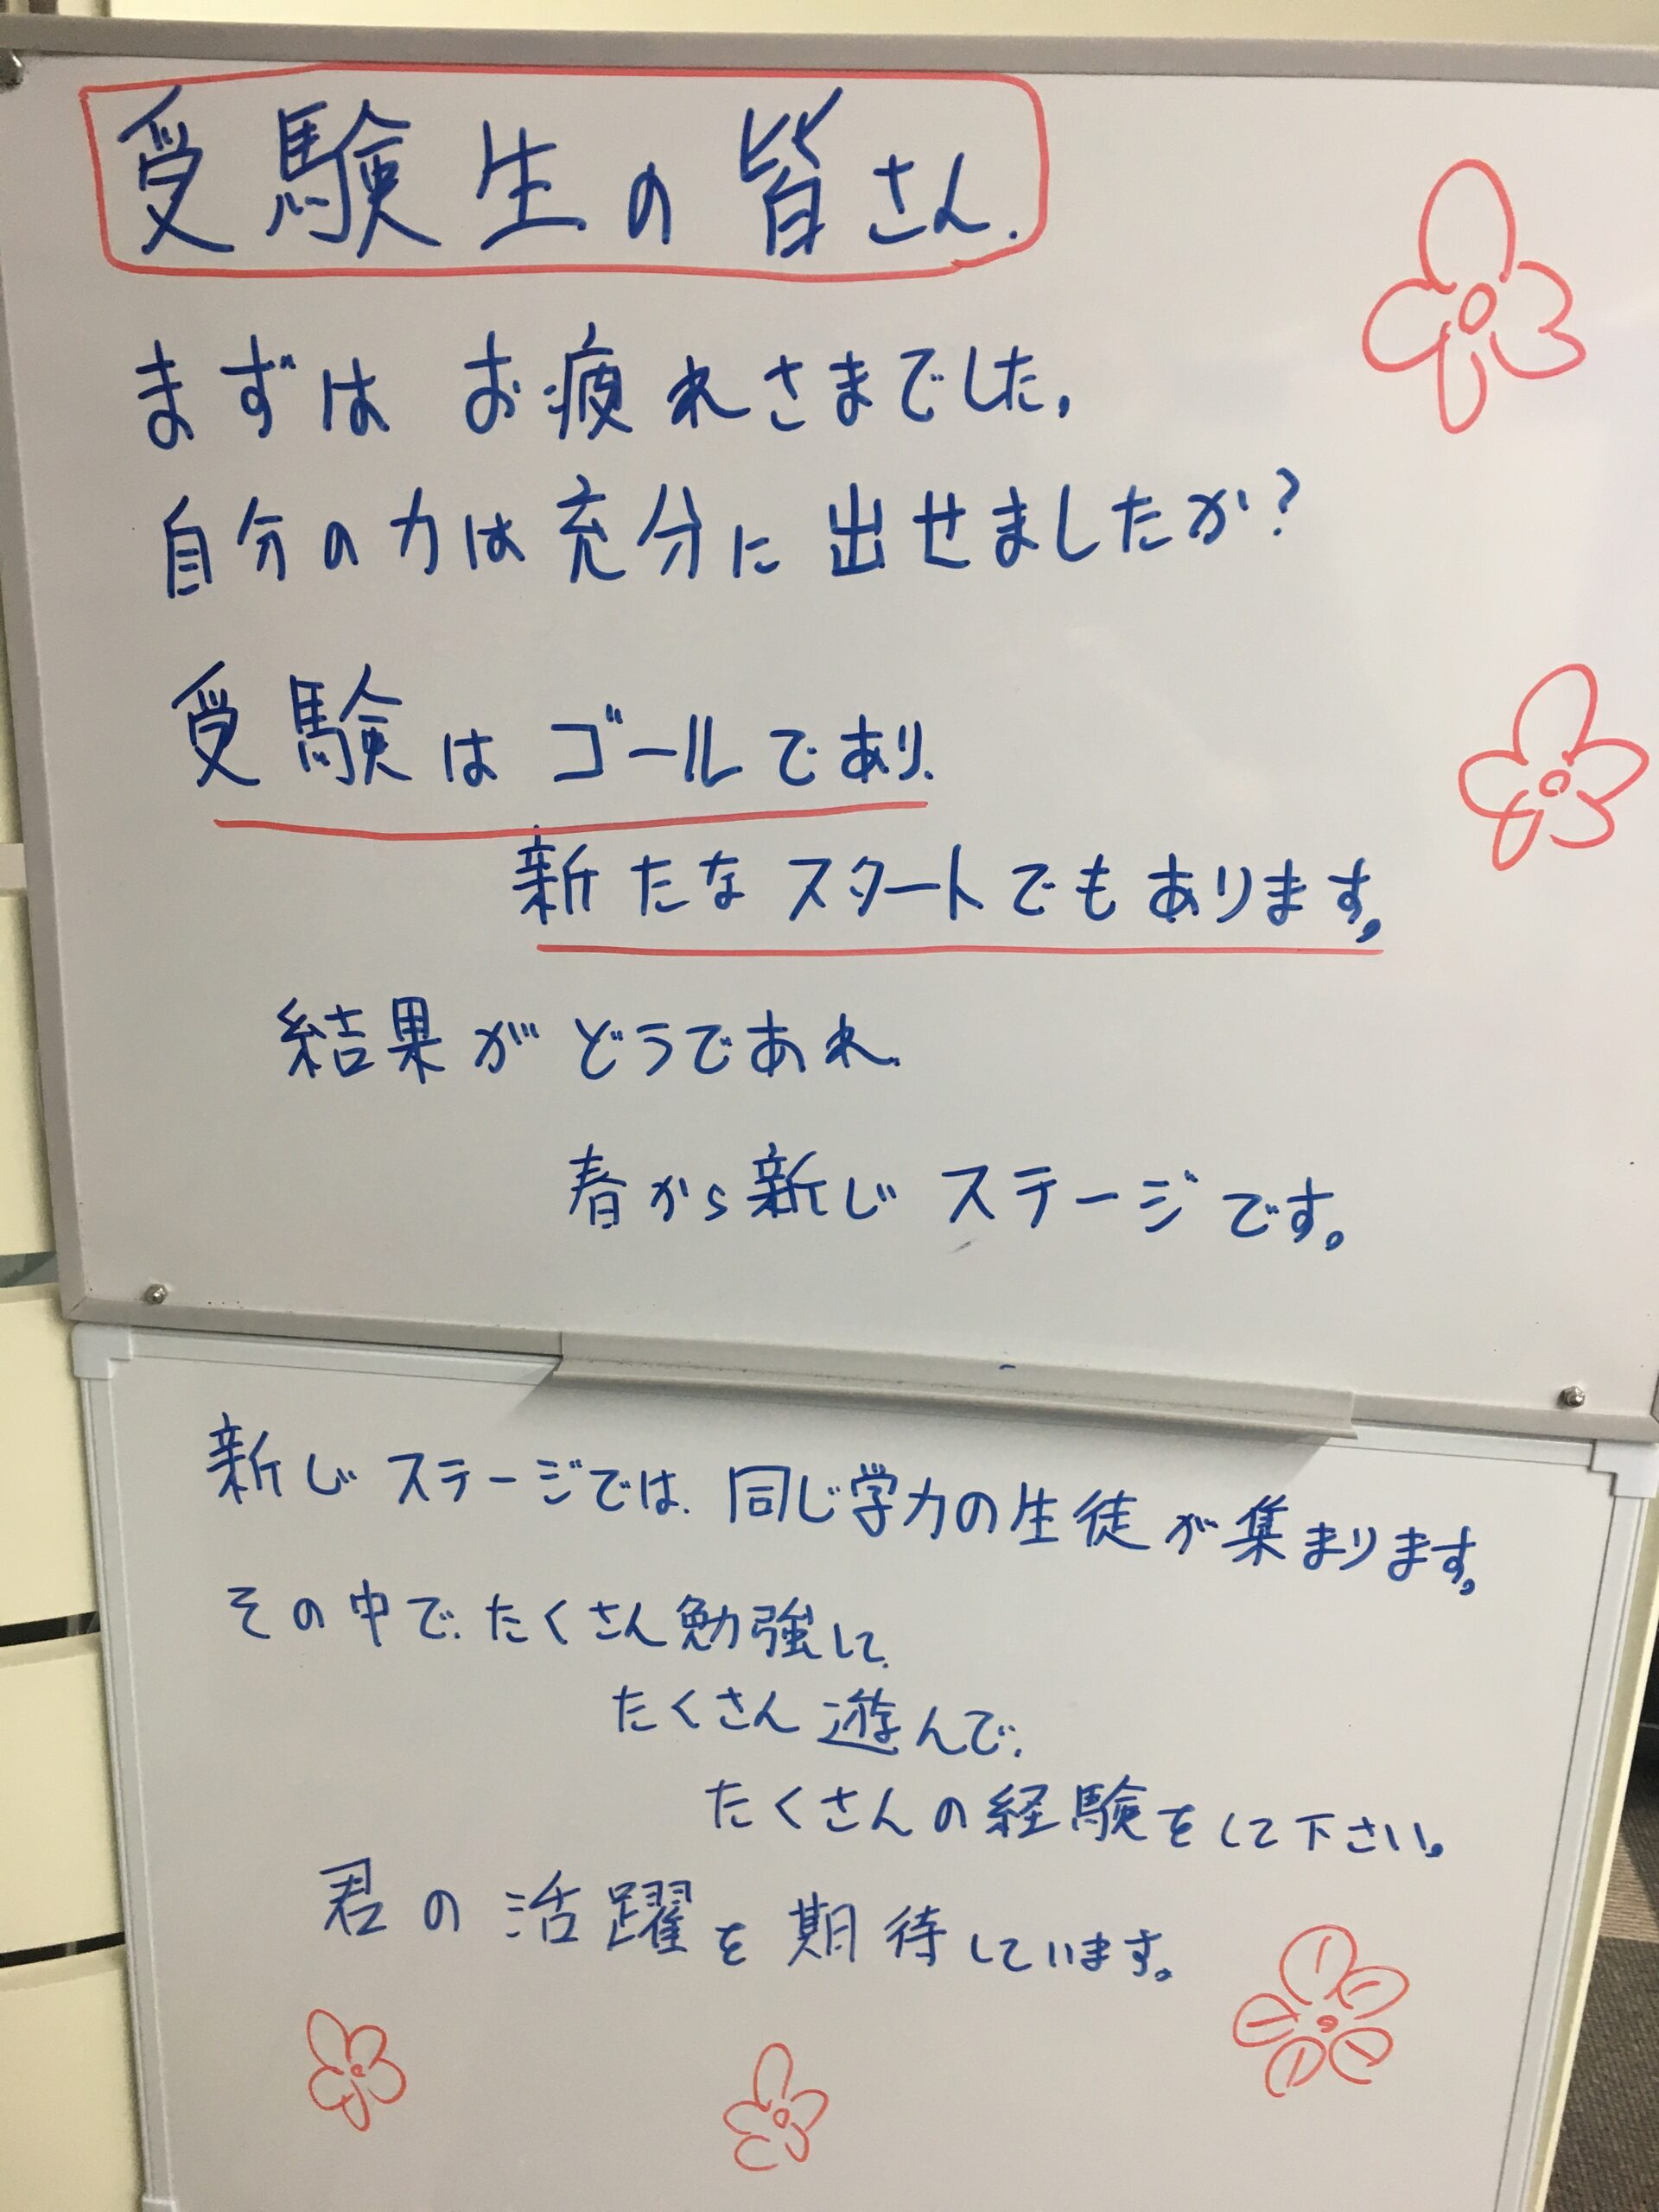 受験生の皆さん.
まずは お疲れさまでした,
自分の力は充分に出せましたか?
受験はゴールであり、
新たなスタートでもあります。
結果がどうであれ、
春から新じステージです。
新じステージでは、同じ学力の生徒が集まります。
その中で、たくさん勉強して、
たくさん遊んで、
たくさんの経験をして下さい。
君の活躍を期待しています。